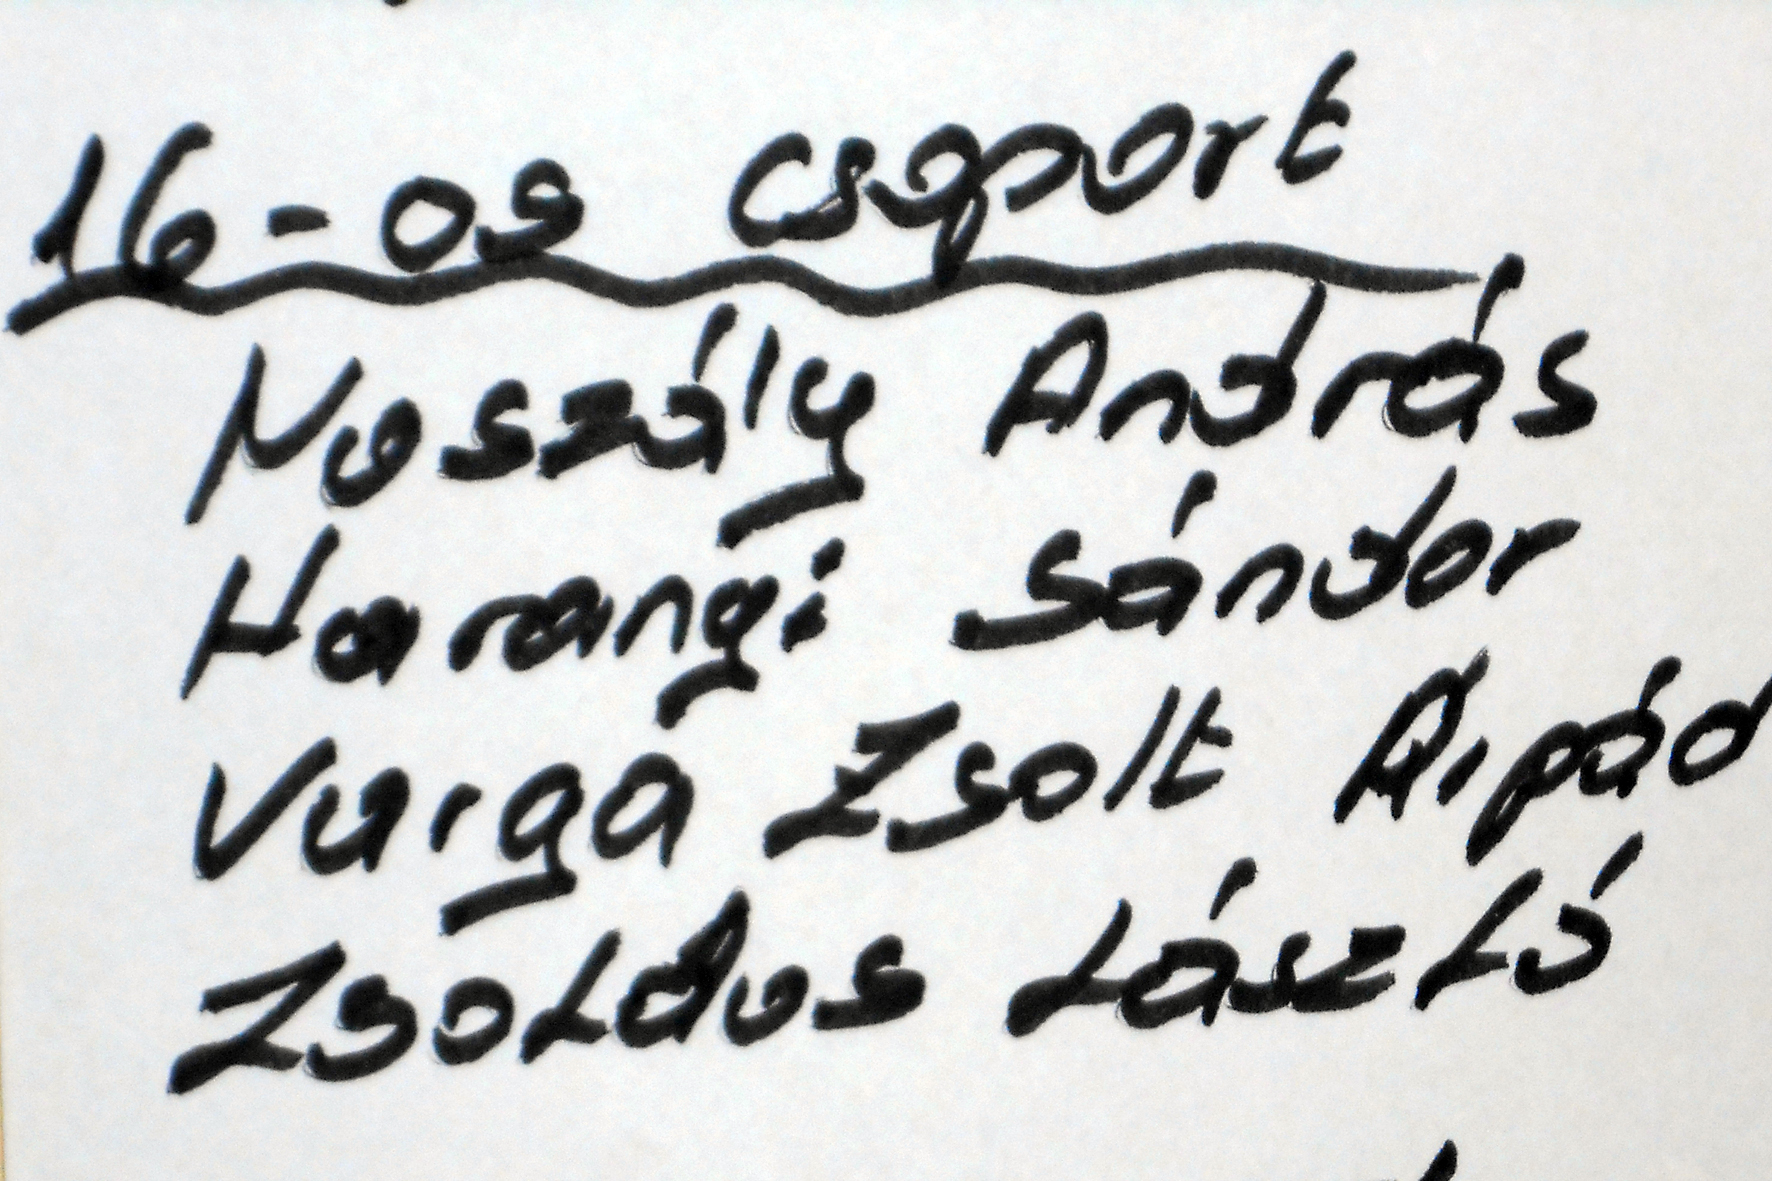 16-os csoport
Noszály András
Harangi Sándor
Varga Zsolt Árpád
Zsoldos László